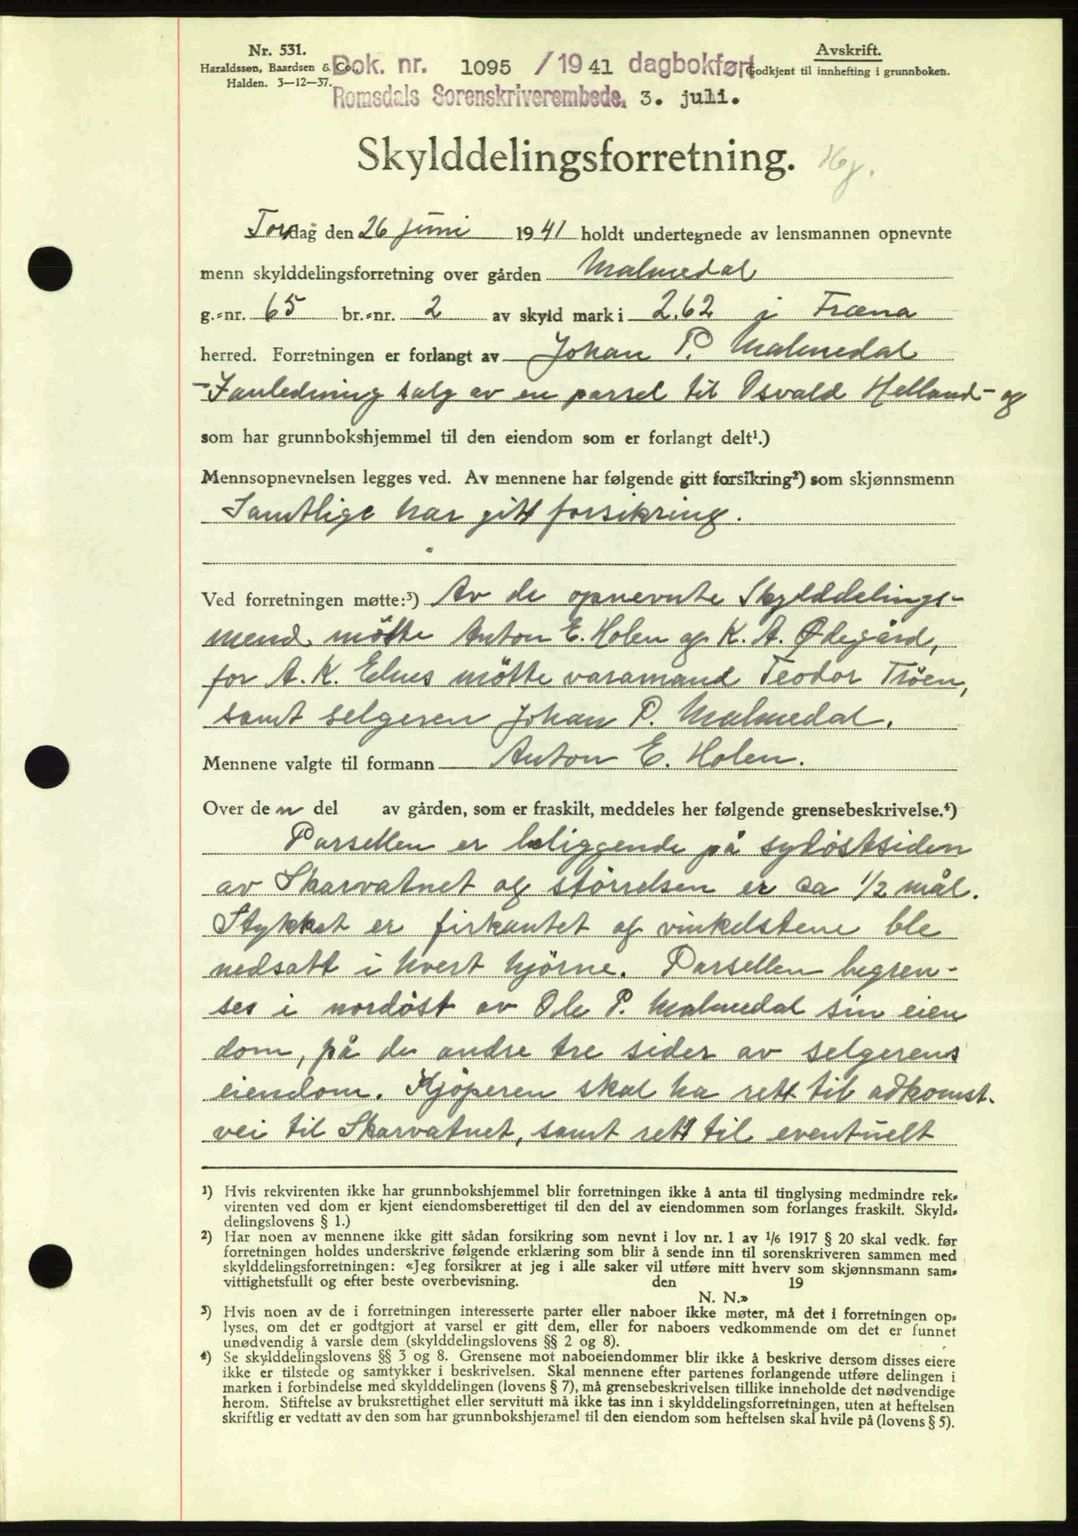 Nr. 531.
Haraldssen, Baardsen & Co.
Halden. 3-12-37.
Avskrift.
Godkjent til innhefting i grunnboken.
Dok. nr. 1095 / 1941 dagbokført
Romsdals Sorenskriverembede, 3. juli.
Skylddelingsforretning.
Torsdag den 26 juni 1941 holdt undertegnede av lensmannen opnevnte
menn skylddelingsforretning over gården Malmedal
g.-nr. 65 br.-nr. 2 av skyld mark i 2,62 i Fræna
herred. Forretningen er forlangt av Johan P. Malmedal
- I anledning salg av en parsel til Osvald Helland - og
som har grunnbokshjemmel til den eiendom som er forlangt delt¹.)
Mennsopnevnelsen legges ved. Av mennene har følgende gitt forsikring²) som skjønnsmenn
Samtlige har gitt forsikring.
Ved forretningen møtte:³) Av de opnevnte Skylddelings-
mend møtte Anton E. Holen og K. A. Ødegård,
for A. K. Elnes møtte varamand Teodor Trøen,
samt selgeren Johan P. Malmedal.
Mennene valgte til formann Anton E. Holen.
Over den del av gården, som er fraskilt, meddeles her følgende grensebeskrivelse.⁴)
Parsellen er beliggende på sydøstsiden
av Skarvatnet og størrelsen er ca 1/2 mål.
Stykket er firkantet og vinkelstene ble
nedsatt i hvert hjørne. Parsellen begren-
ses i nordøst av Ole P. Malmedal sin eien
dom, på de andre tre sider av selgerens
eiendom. Kjøperen skal ha rett til adkomst-
vei til Skarvatnet, samt rett til eventuelt
¹) Hvis rekvirenten ikke har grunnbokshjemmel blir forretningen ikke å anta til tinglysing medmindre rek-
virenten ved dom er kjent eiendomsberettiget til den del av eiendommen som forlanges fraskilt. Skyld-
delingslovens § 1.)
²) Har noen av mennene ikke gitt sådan forsikring som nevnt i lov nr. 1 av 1/6 1917 § 20 skal vedk. før
forretningen holdes underskrive følgende erklæring som blir å sende inn til sorenskriveren sammen med
skylddelingsforretningen: «Jeg forsikrer at jeg i alle saker vil utføre mitt hverv som skjønnsmann sam-
vittighetsfullt og efter beste overbevisning. den 19
N. N.»
³) Hvis noen av de i forretningen interesserte parter eller naboer ikke møter, må det i forretningen op-
lyses, om det er godtgjort at varsel er gitt dem, eller for naboers vedkommende om det er funnet
unødvendig å varsle dem (skylddelingslovens §§ 2 og 8).
⁴) Se skylddelingslovens §§ 3 og 8. Grensene mot naboeiendommer blir ikke å beskrive dersom disses eiere
ikke er tilstede og samtykker i beskrivelsen. Skal mennene efter partenes forlangende utføre delingen i
marken i forbindelse med skylddelingen (lovens § 7), må grensebeskrivelsen tillike inneholde det nødvendige
herom. Stiftelse av bruksrettighet eller servitutt må ikke tas inn i skylddelingsforretningen, uten at heftelsen
skriftlig er vedtatt av den som har grunnbokshjemmel til den eiendom som heftelsen skal hvile på (lovens § 5).